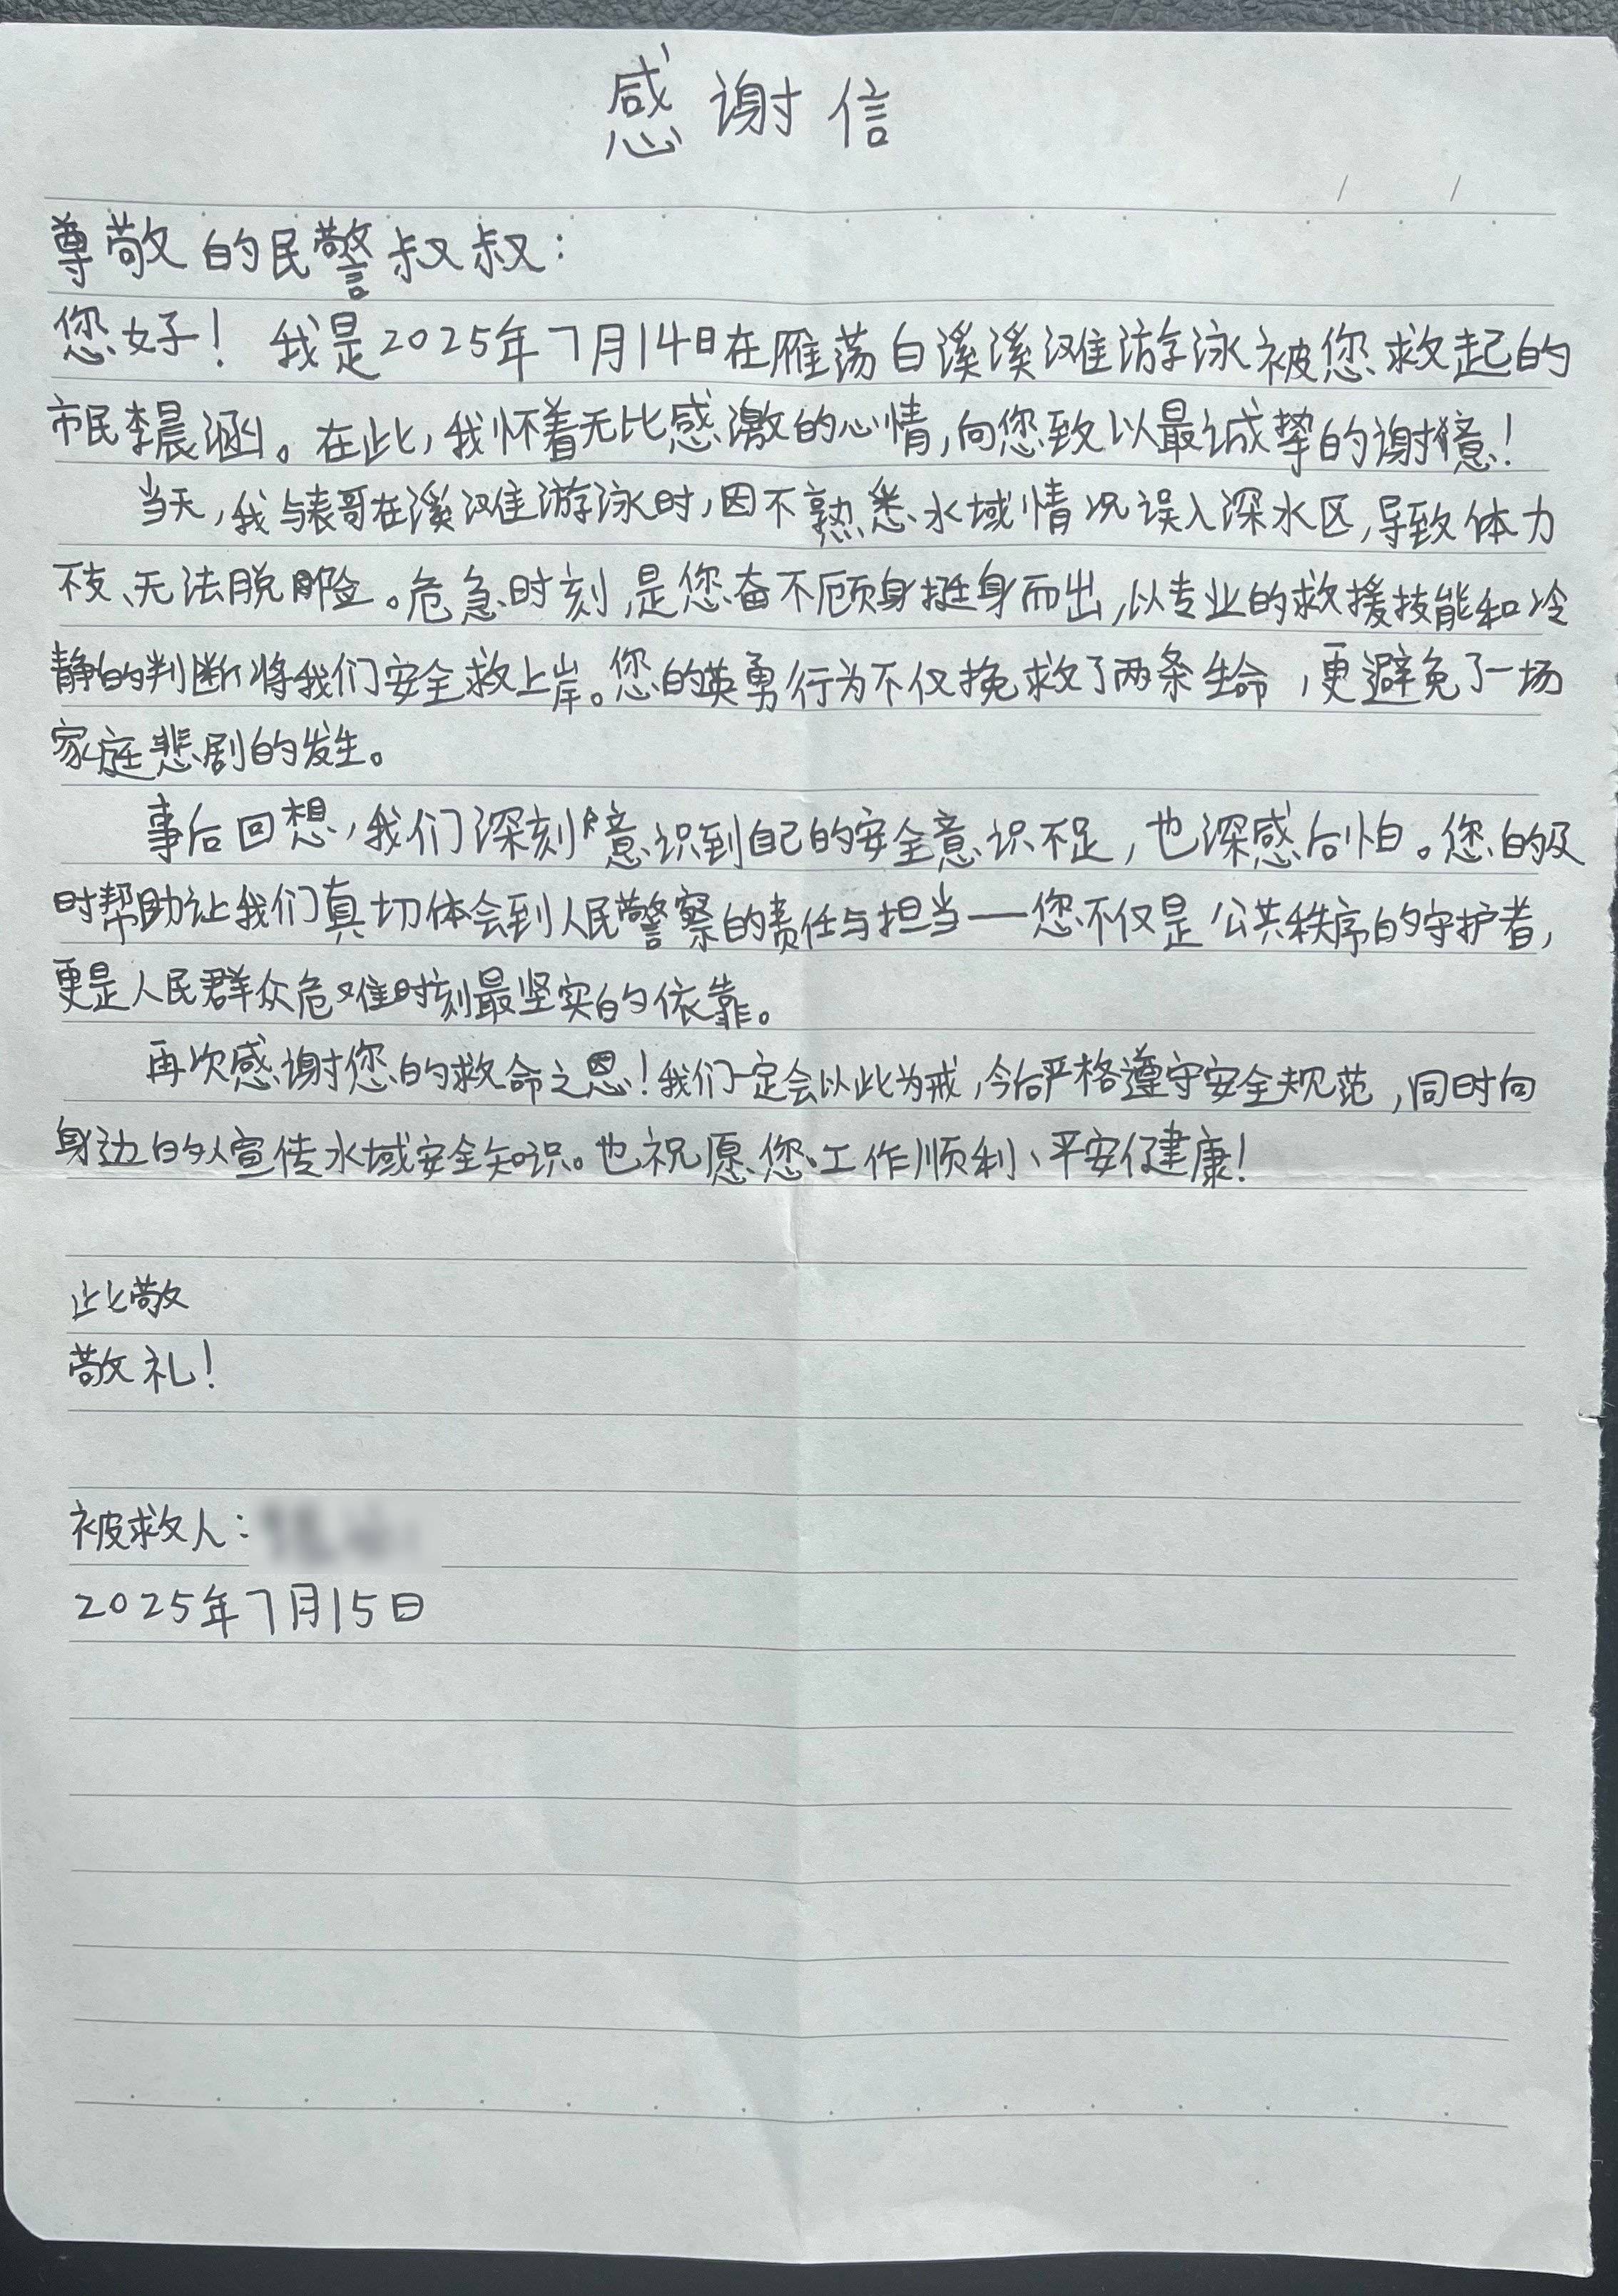 感谢信
尊敬的民警叔叔：
您好！我是2025年7月14日在雁荡白溪溪滩游泳被您救起的
市民李晨涵。在此，我怀着无比感激的心情，向您致以最诚挚的谢意！
当天，我与表哥在溪滩游泳时，因不熟悉水域情况误入深水区，导致体力
不支、无法脱险。危急时刻，是您奋不顾身挺身而出，以专业的救援技能和冷
静的判断将我们安全救上岸。您的英勇行为不仅挽救了两条生命，更避免了一场
家庭悲剧的发生。
事后回想，我们深刻意识到自己的安全意识不足，也深感后怕。您的及
时帮助让我们真切体会到人民警察的责任与担当——您不仅是公共秩序的守护者，
更是人民群众危难时刻最坚实的依靠。
再次感谢您的救命之恩！我们一定会以此为戒，今后严格遵守安全规范，同时向
身边的人宣传水域安全知识。也祝愿您工作顺利、平安健康！
此敬
敬礼！
被救人：
2025年7月15日